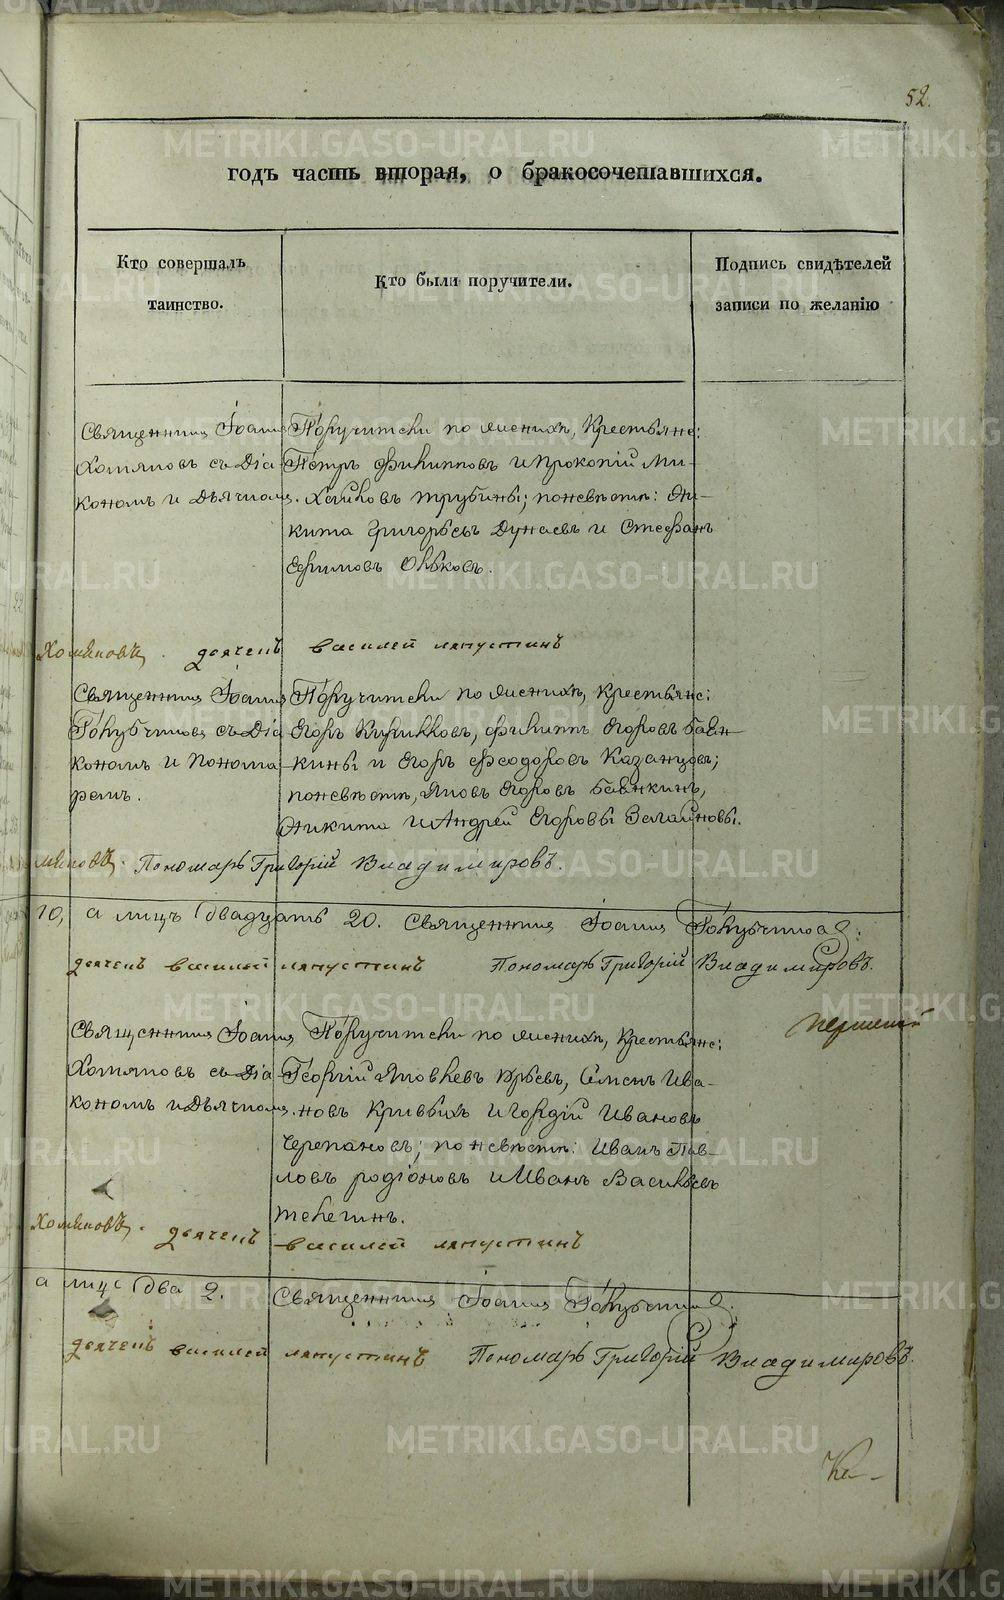 52.
годъ часть вторая, о бракосочетавшихся.
Кто совершалъ
таинство.
Кто были поручители.
Подпись свидѣтелей
записи по желанію
Священникъ Іоаннъ
Хомяковъ съ Діа-
кономъ и Дьячкомъ.
Поручители по женихѣ, Крестьяне:
Петръ Филипповъ и Прокопій Ми-
хайловъ Трубины; по невѣстѣ: Ни-
кита Григорьевъ Дунаевъ и Стефанъ
Ефимовъ Ольковъ.
Хомяковъ. дьячекъ василей ляпустинъ
Священникъ Іоаннъ
Голубчиковъ съ Діа-
кономъ и Понома-
ремъ.
Поручители по женихѣ, Крестьяне:
Егоръ Кирилловъ, Филиппъ Егоровъ Баен-
кины и Егоръ Феодоровъ Казанцовъ;
по невѣстѣ, Яковъ Егоровъ Баенкинъ,
Никита и Андрей Егоровы
Пономарь Григорій Владимировъ.
10, а лицъ двадцать 20. Священникъ Іоаннъ Голубчиковъ:
дьячекъ василей ляпустинъ Пономарь Григорій Владимировъ.
Священникъ Іоаннъ
Хомяковъ съ Діа-
кономъ и Дьячкомъ.
Поручители по женихѣ, Крестьяне:
Георгій Яковлевъ Юрьевъ, Семенъ Ива-
новъ Кривыхъ и Гордій Ивановъ
Черепановъ; по невѣстѣ: Иванъ Пав-
ловъ родіоновъ и Иванъ Васильевъ
телегинъ.
Хомяковъ. дьячекъ василей ляпустинъ
а лицъ два 2. Священникъ Іоаннъ Голубчиковъ.
дьячекъ василей ляпустинъ Пономарь Григорій Владимировъ.
METRIKI.GASO-URAL.RU